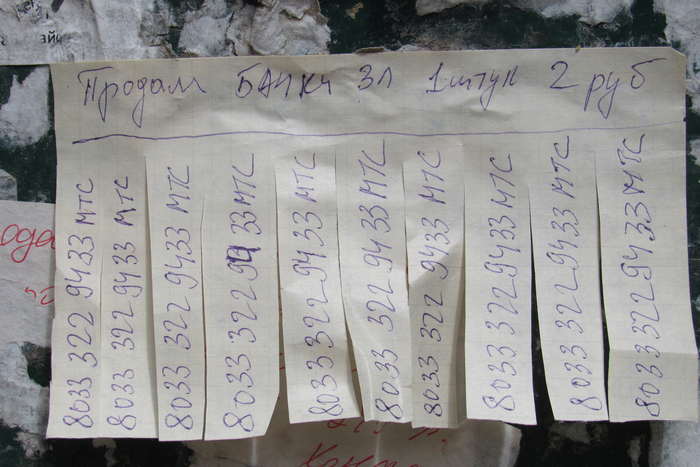 Продам БАНКИ 3Л 1 штук 2 руб
8033 322 9433 МТС
8033 322 9433 МТС
8033 322 9433 МТС
8033 322 9433 МТС
8033 322 9433 МТС
8033 322 9433 МТС
8033 322 9433 МТС
8033 322 9433 МТС
8033 322 9433 МТС
8033 322 9433 МТС